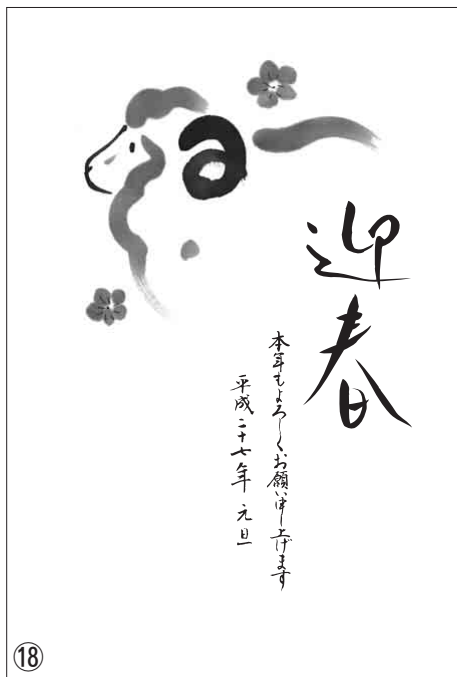 迎春
本年もよろしくお願い申し上げます
平成二十七年 元旦
⑱